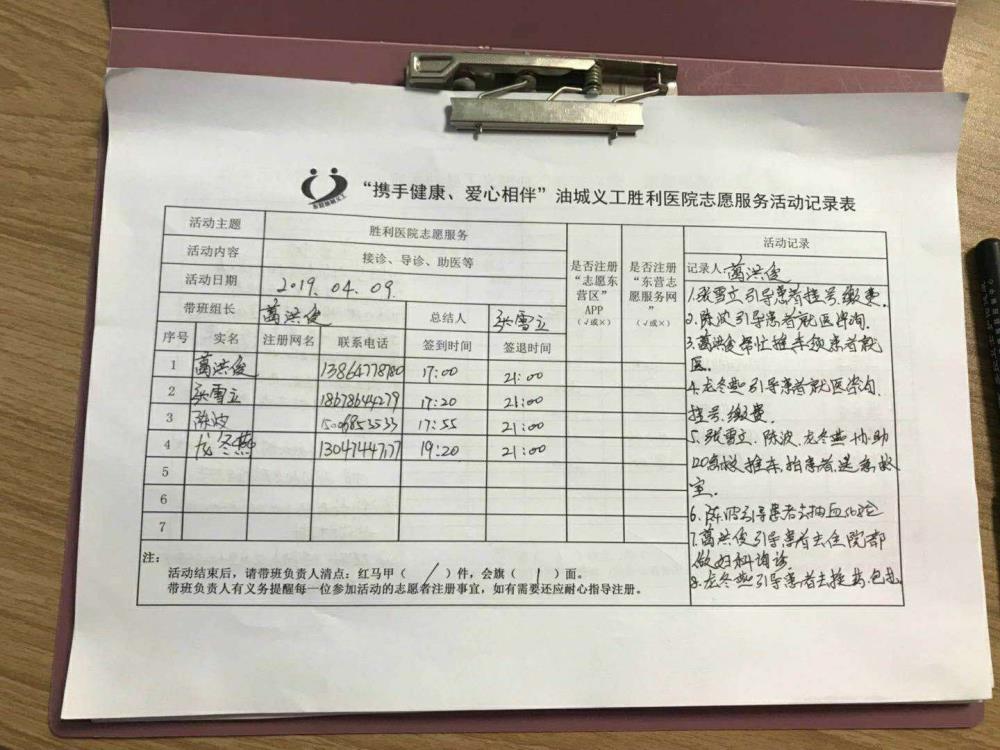 “携手健康、爱心相伴”油城义工胜利医院志愿服务活动记录表
活动主题 胜利医院志愿服务
活动内容 接诊、导诊、助医等
活动日期 2019.04.09.
带班组长 葛洪俊 总结人 张雪立
是否注册“志愿东营区”APP（√或×）
是否注册“东营志愿服务网”（√或×）
序号 实名 注册网名 联系电话 签到时间 签退时间
1 葛洪俊 13864778780 17:00 21:00
2 张雪立 18678644279 17:20 21:00
3 陈波 15006853533 17:55 21:00
4 龙冬燕 13047144777 19:20 21:00
5
6
7
注：
活动结束后，请带班负责人清点：红马甲（ / ）件，会旗（ 1 ）面。
带班负责人有义务提醒每一位参加活动的志愿者注册事宜，如有需要还应耐心指导注册。
活动记录
记录人 葛洪俊
1.张雪立引导患者挂号,缴费.
2.陈波引导患者就医咨询.
3.葛洪俊帮忙推车领患者就
医.
4.龙冬燕引导患者就医咨询
挂号.缴费.
5.张雪立.陈波.龙冬燕协助
120急救推车,抬患者送急救
室.
6.陈波引导患者去抽血化验
7.葛洪俊引导患者去住院部
做妇科询诊.
8.龙冬燕引导患者去换药包扎